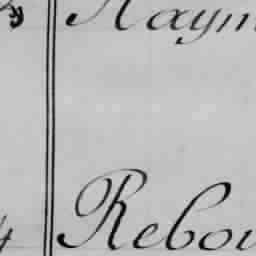 Raym
4 Rebou